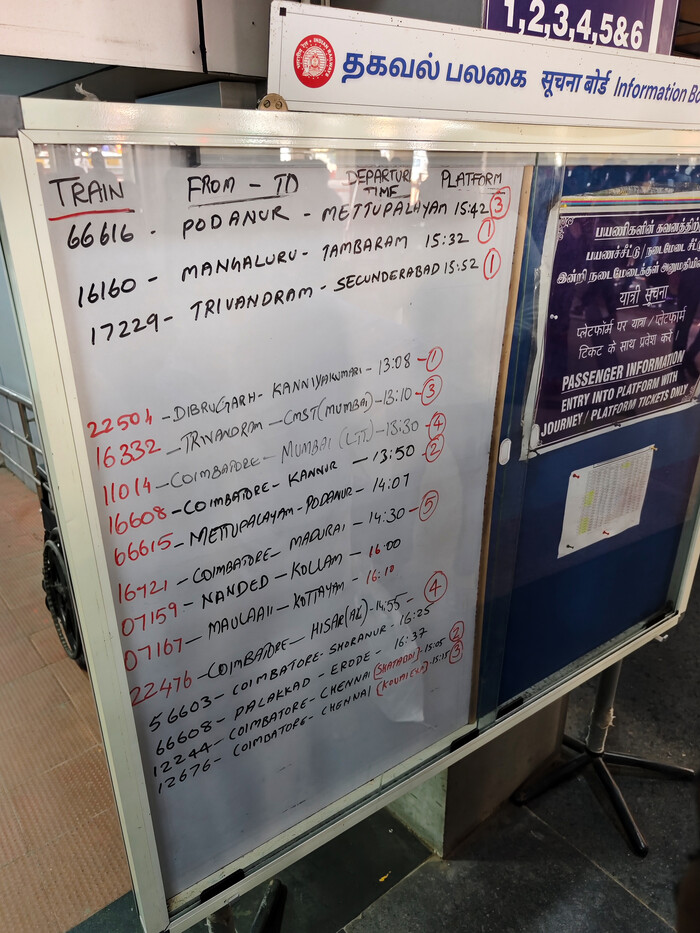 1,2,3,4,5&6
தகவல் பலகை सूचना बोर्ड Information Bo
TRAIN FROM - TO DEPARTURE TIME PLATFORM
66616 - PODANUR - METTUPALAYAM 15:42 3
16160 - MANGALURU - TAMBARAM 15:32 1
17229 - TRIVANDRAM - SECUNDERABAD 15:52 1
22504 - DIBRUGARH - KANNIYAKUMARI - 13:08 - 1
16332 - TRIVANDRAM - CMST (MUMBAI) - 13:10 - 3
11014 - COIMBATORE - MUMBAI (LTT) - 13:30 - 4
16608 - COIMBATORE - KANNUR - 13:50 - 2
66615 - METTUPALAYAM - PODANUR - 14:07
16721 - COIMBATORE - MADURAI - 14:30 - 5
07159 - NANDED - KOLLAM - 16:00
07167 - MAULAAII - KOTTAYAM - 16:10
22476 - COIMBATORE - HISAR (AC) - 14:55 - 4
56603 - COIMBATORE - SHORANUR - 16:25
66608 - PALAKKAD - ERODE - 16:37
12244 - COIMBATORE - CHENNAI (SHATABDI) - 15:05 2
12676 - COIMBATORE - CHENNAI - 15:15 3
பயணிகளின் கனத்திற்
பயணச்சீட்டு / நடைமேடை சீட்
இன்றி நடைமேடைக்குள் அனுமதியி
यात्री सूचना
प्लेटफॉर्म पर यात्रा / प्लेटफॉर्म
टिकट के साथ प्रवेश करें
PASSENGER INFORMATION
ENTRY INTO PLATFORM WITH
JOURNEY / PLATFORM TICKETS ONLY